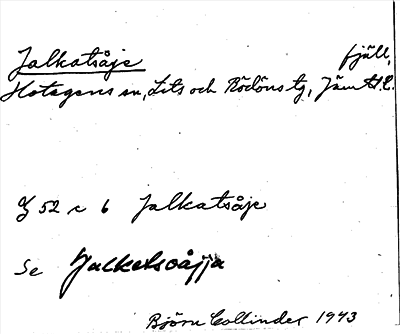 Jalkatsåje fjäll,
Hotagens sn, Lits och Rödöns tg, Jämtl. l.
Z 52 c 6 Jalkatsåje
Se Jalkelsoåjja
Björn Collinder 1943